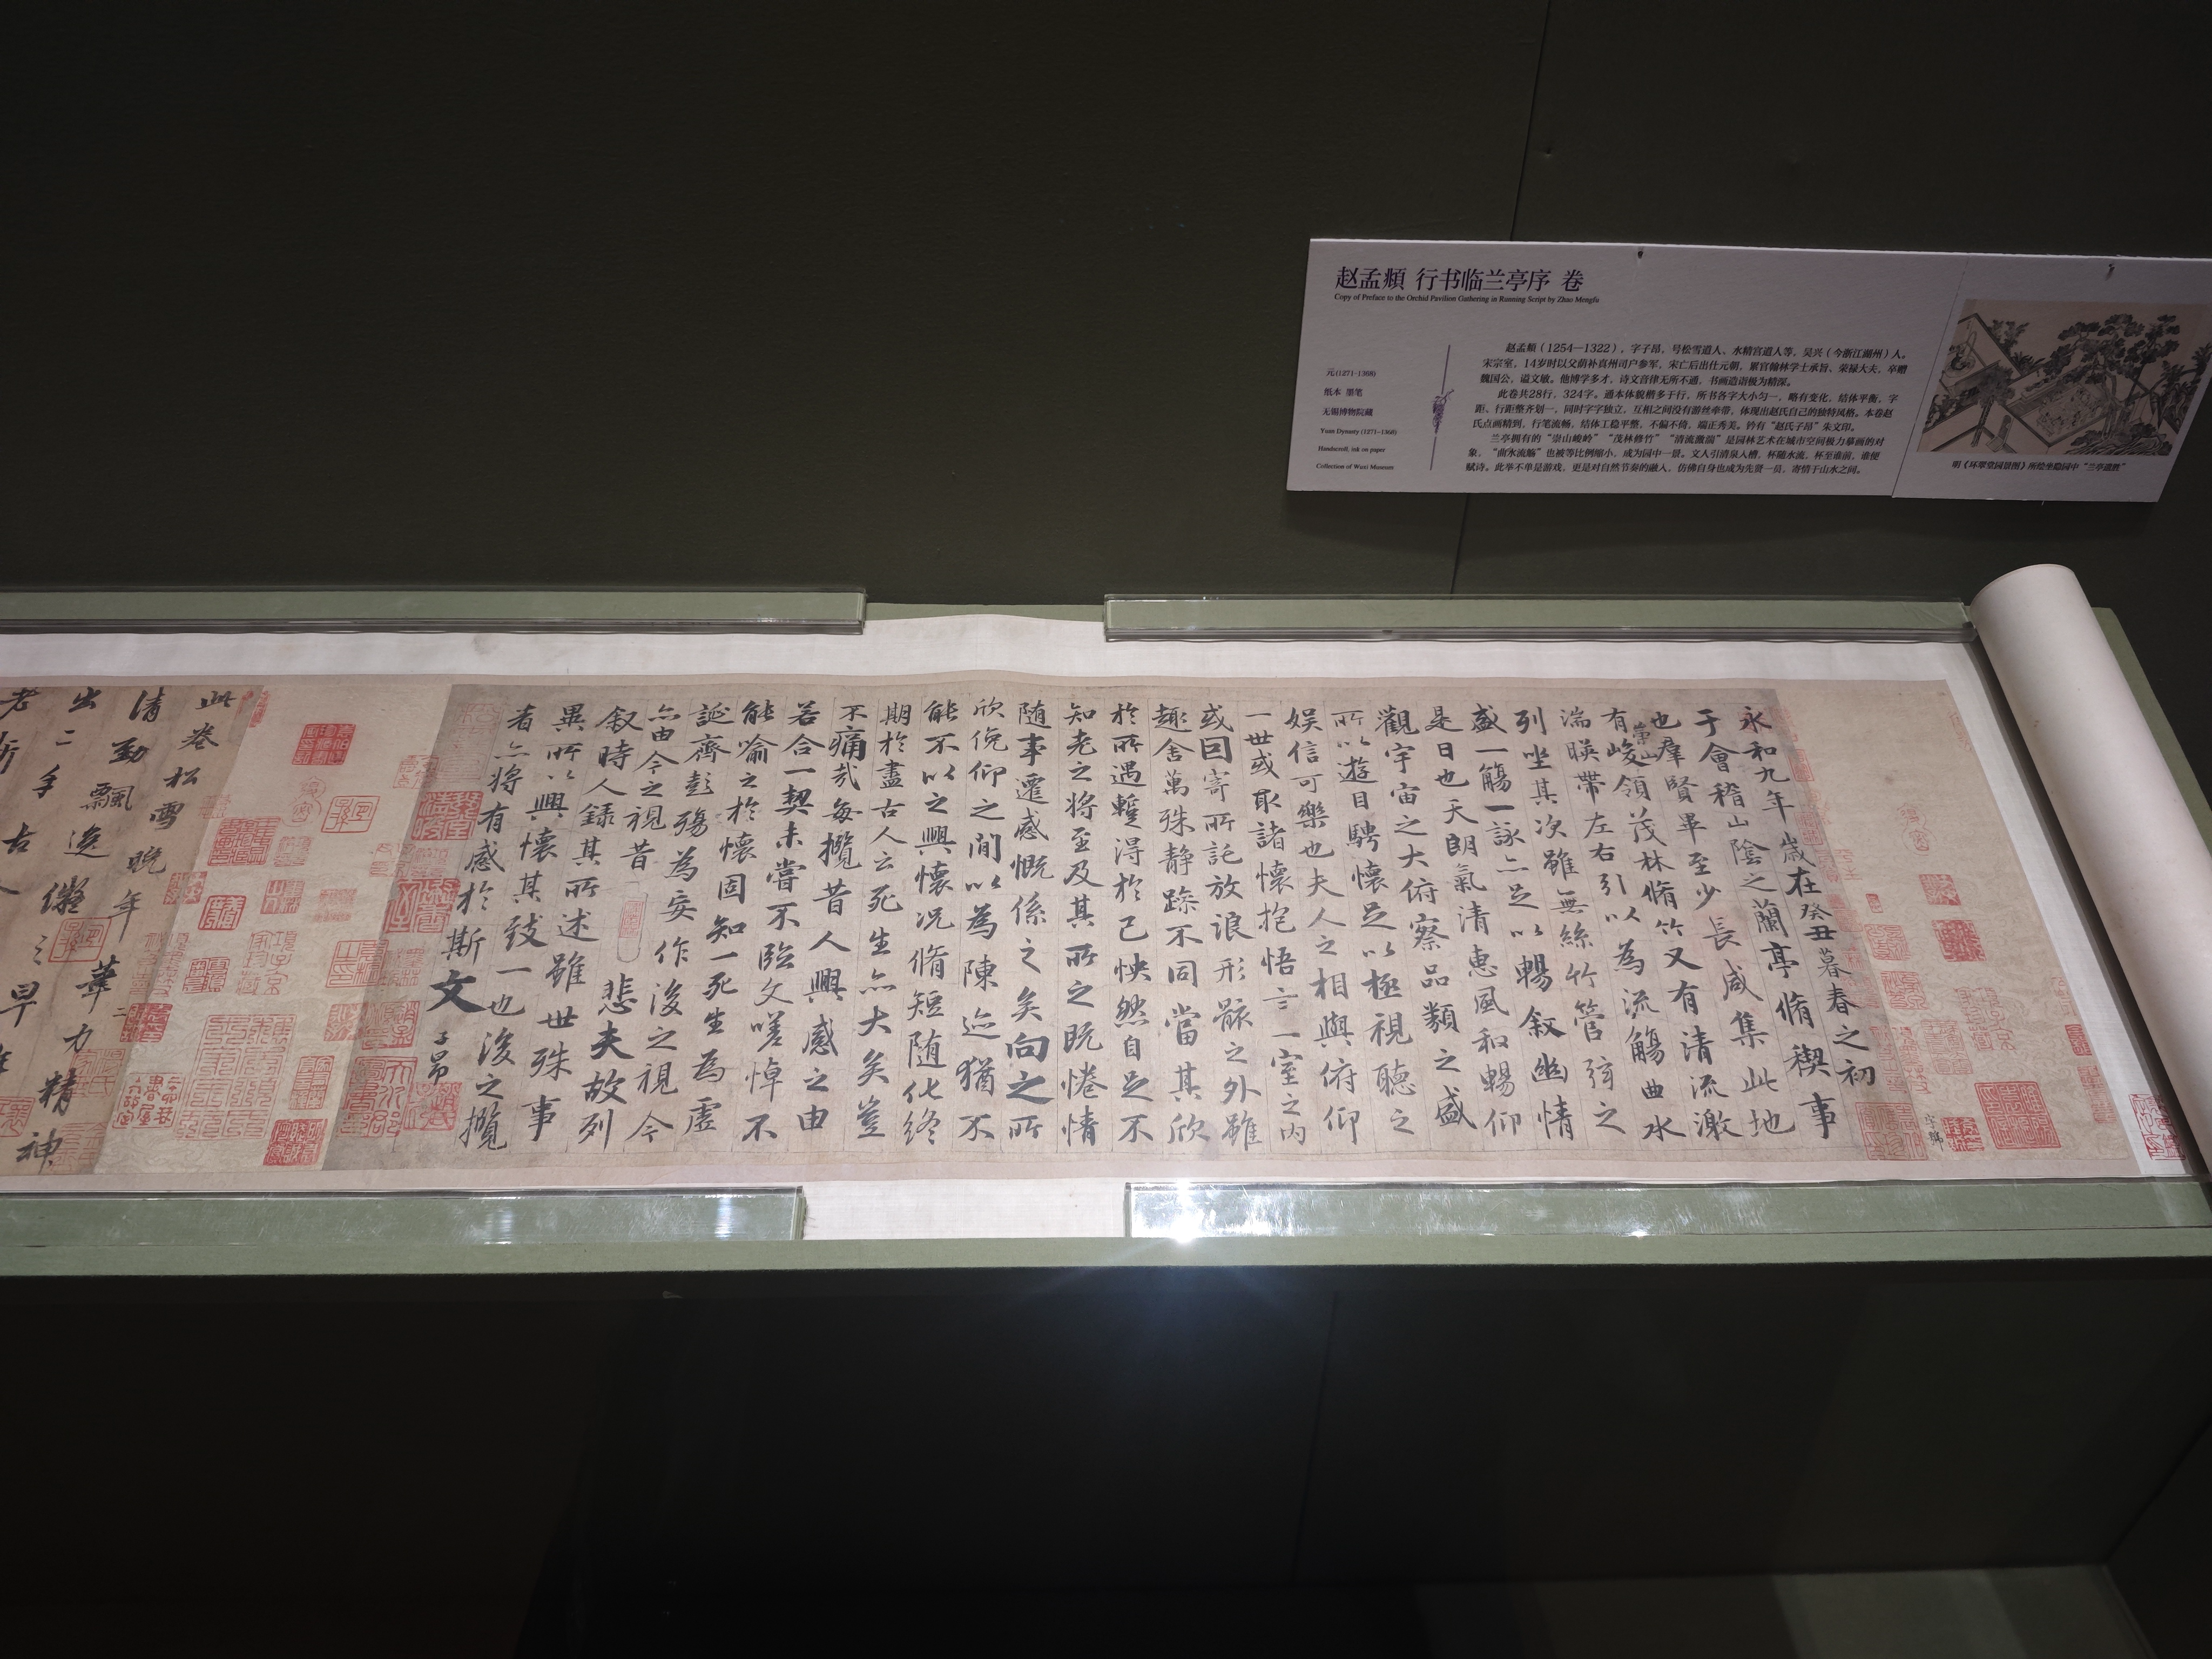 赵孟頫 行书临兰亭序 卷
Copy of Preface to the Orchid Pavilion Gathering in Running Script by Zhao Mengfu
元(1271-1368)
纸本 墨笔
无锡博物院藏
Yuan Dynasty (1271-1368)
Handscroll, ink on paper
Collection of Wuxi Museum
赵孟頫（1254—1322），字子昂，号松雪道人、水精宫道人等，吴兴（今浙江湖州）人。
宋宗室，14岁时以父荫补真州司户参军，宋亡后出仕元朝，累官翰林学士承旨、荣禄大夫，卒赠
魏国公，谥文敏。他博学多才，诗文音律无所不通，书画造诣极为精深。
此卷共28行，324字。通本体貌楷多于行，所书各字大小匀一，略有变化，结体平衡，字
距、行距整齐划一，同时字字独立，互相之间没有游丝牵带，体现出赵氏自己的独特风格。本卷赵
氏点画精到，行笔流畅，结体工稳平整，不偏不倚，端正秀美。钤有“赵氏子昂”朱文印。
兰亭拥有的“崇山峻岭”“茂林修竹”“清流激湍”是园林艺术在城市空间极力摹画的对
象，“曲水流觞”也被等比例缩小，成为园中一景。文人引清泉入槽，杯随水流，杯至谁前，谁便
赋诗。此举不单是游戏，更是对自然节奏的融入，仿佛自身也成为先贤一员，寄情于山水之间。
明《环翠堂园景图》所绘坐隐园中“兰亭遗胜”
永和九年歲在癸丑暮春之初
于會稽山陰之蘭亭脩禊事
也羣賢畢至少長咸集此地
有崇山峻領茂林脩竹又有清流激
湍暎帶左右引以為流觴曲水
列坐其次雖無絲竹管弦之
盛一觴一詠亦足以暢叙幽情
是日也天朗氣清惠風和暢仰
觀宇宙之大俯察品類之盛
所以遊目騁懷足以極視聽之
娱信可樂也夫人之相與俯仰
一世或取諸懷抱悟言一室之内
或因寄所託放浪形骸之外雖
趣舍萬殊静躁不同當其欣
於所遇蹔得於己怏然自足不
知老之將至及其所之既惓情
随事遷感慨係之矣向之所
欣俛仰之間以為陳迹猶不
能不以之興懷况脩短随化終
期於盡古人云死生亦大矣豈
不痛哉每攬昔人興感之由
若合一契未嘗不臨文嗟悼不
能喻之於懷固知一死生為虚
誕齊彭殤為妄作後之視今
亦由今之視昔悲夫故列
叙時人録其所述雖世殊事
異所以興懷其致一也後之攬
者亦将有感於斯文
子昂
此卷松雪晚年筆力精神
清勁飄逸儼
出二手